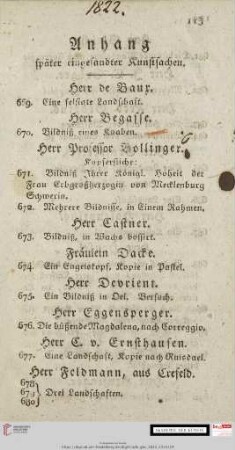 1822.
Anhang
später eingesandter Kunstsachen.
Herr de Baux.
669. Eine felsigte Landschaft.
Herr Begasse.
670. Bildniß eines Knaben.
Herr Professor Bollinger.
Kupferstiche:
671. Bildniß Ihrer Königl. Hoheit der
Frau Erbgroßherzogin von Mecklenburg
Schwerin.
672. Mehrere Bildnisse, in Einem Rahmen.
Herr Castner.
673. Bildniß, in Wachs bossirt.
Fräulein Dacke.
674. Ein Engelskopf, Kopie in Pastel.
Herr Devrient.
675. Ein Bildniß in Oel. Versuch.
Herr Eggensperger.
676. Die büßende Magdalena, nach Correggio.
Herr C. v. Ernsthausen.
677. Eine Landschaft, Kopie nach Ruisdael.
Herr Feldmann, aus Crefeld.
678
679 Drei Landschaften.
680